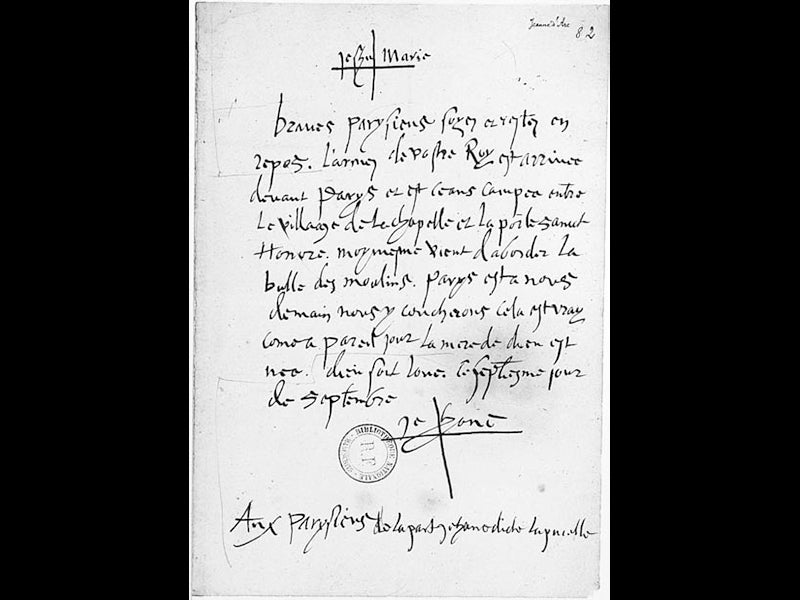 Jeanne d'Arc
82
Jehsu Marie
braves parysiens soyez et restez en
repos. L'armee de vostre Roy est arrivee
devant parys et est ceans campee entre
Le village de Lachapelle et La porte sainct
Honore. moymesme vient d'aborder La
butte des moulins. parys est a nous
demain nous y coucherons cela est vray
come a pareil jour La mere de dieu est
nee. dieu soit loue. ce septiesme jour
de septembre
Jehane
BIBLIOTHEQUE NATIONALE
R.F.
Aux parysiens de la part jehane dicte Lapucelle